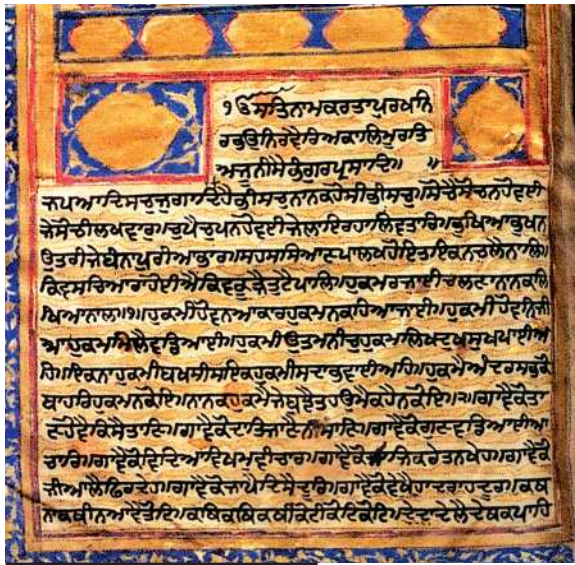 ੴਸਤਿਨਾਮਕਰਤਾਪੁਰਖਨਿ
ਰਭਉਨਿਰਵੈਰਿਅਕਾਲਿਮੂਰਤਿ
ਅਜੂਨੀਸੈਭੰਗੁਰਪ੍ਰਸਾਦਿ॥ ॥
ਜਪਆਦਿਸਚੁਜੁਗਾਦਿਹੈਭੀਸਚੁਨਾਨਕਹੋਸੀਭੀਸਚੁ॥ਸੋਚੈਸੋਚਨਹੋਵਈ
ਜੇਸੋਚੀਲਖਵਾਰ॥ਚੁਪੈਚੁਪਨਹੋਵਈਜੇਲਾਇਰਹਾਲਿਵਤਾਰਿ॥ਭੁਖਿਆਭੁਖਨ
ਉਤਰੀਜੇਬੰਨਪੁਰੀਆਭਾਰ॥ਸਹਸਸਿਆਣਪਾਲਖਹੋਇਤਇਕਨਚਲੈਨਾਲਿ॥
ਕਿਵਸਚਿਆਰਾਹੋਈਐਕਿਵਕੂੜੈਤੁਟੈਪਾਲਿ॥ਹੁਕਮਰਜਾਈਚਲਣਾਨਾਨਕਲਿ
ਖਿਆਨਾਲਿ॥੧॥ਹੁਕਮੀਹੋਵਨਆਕਾਰਹੁਕਮਨਕਹਿਆਜਾਈ॥ਹੁਕਮੀਹੋਵਨਿਜੀ
ਆਹੁਕਮਮਿਲੈਵਡਿਆਈ॥ਹੁਕਮੀਉਤਮਨੀਚੁਹੁਕਮਲਿਖਦੁਖਸੁਖਪਾਈਅ
ਹਿ॥ਇਕਨਾਹੁਕਮੀਬਖਸੀਸਇਕਹੁਕਮੀਸਦਾਭਵਾਈਅਹਿ॥ਹੁਕਮੈਅੰਦਰਸਭੁਕੋ
ਬਾਹਰਿਹੁਕਮਨਕੋਇ॥ਨਾਨਕਹੁਕਮੈਜੇਬੁਝੈਤਹਉਮੈਕਹੈਨਕੋਇ॥੨॥ਗਾਵੈਕੋਤਾ
ਣਹੋਵੈਕਿਸੈਤਾਣਿ॥ਗਾਵੈਕੋਦਾਤਿਜਾਣੈਨੀਸਾਣਿ॥ਗਾਵੈਕੋਗੁਣਵਡਿਆਈਆ
ਚਾਰਿ॥ਗਾਵੈਕੋਵਿਦਿਆਵਿਖਮੁਵੀਚਾਰ॥ਗਾਵੈਕੋਸਾਜਿਕਰੇਤਨਖੇਹ॥ਗਾਵੈਕੋ
ਜੀਆਲੈਫਿਰਦੇਹ॥ਗਾਵੈਕੋਜਾਪੈਦਿਸੈਦੂਰਿ॥ਗਾਵੈਕੋਵੇਖੈਹਾਦਰਾਹਦੂਰ॥ਕਥ
ਨਾਕਥੀਨਆਵੈਤੋਟਿ॥ਕਥਿਕਥਿਕਥੀਕੋਟੀਕੋਟਿਕੋਟਿ॥ਦੇਦਾਦੇਲੈਦੇਥਕਪਾਹਿ